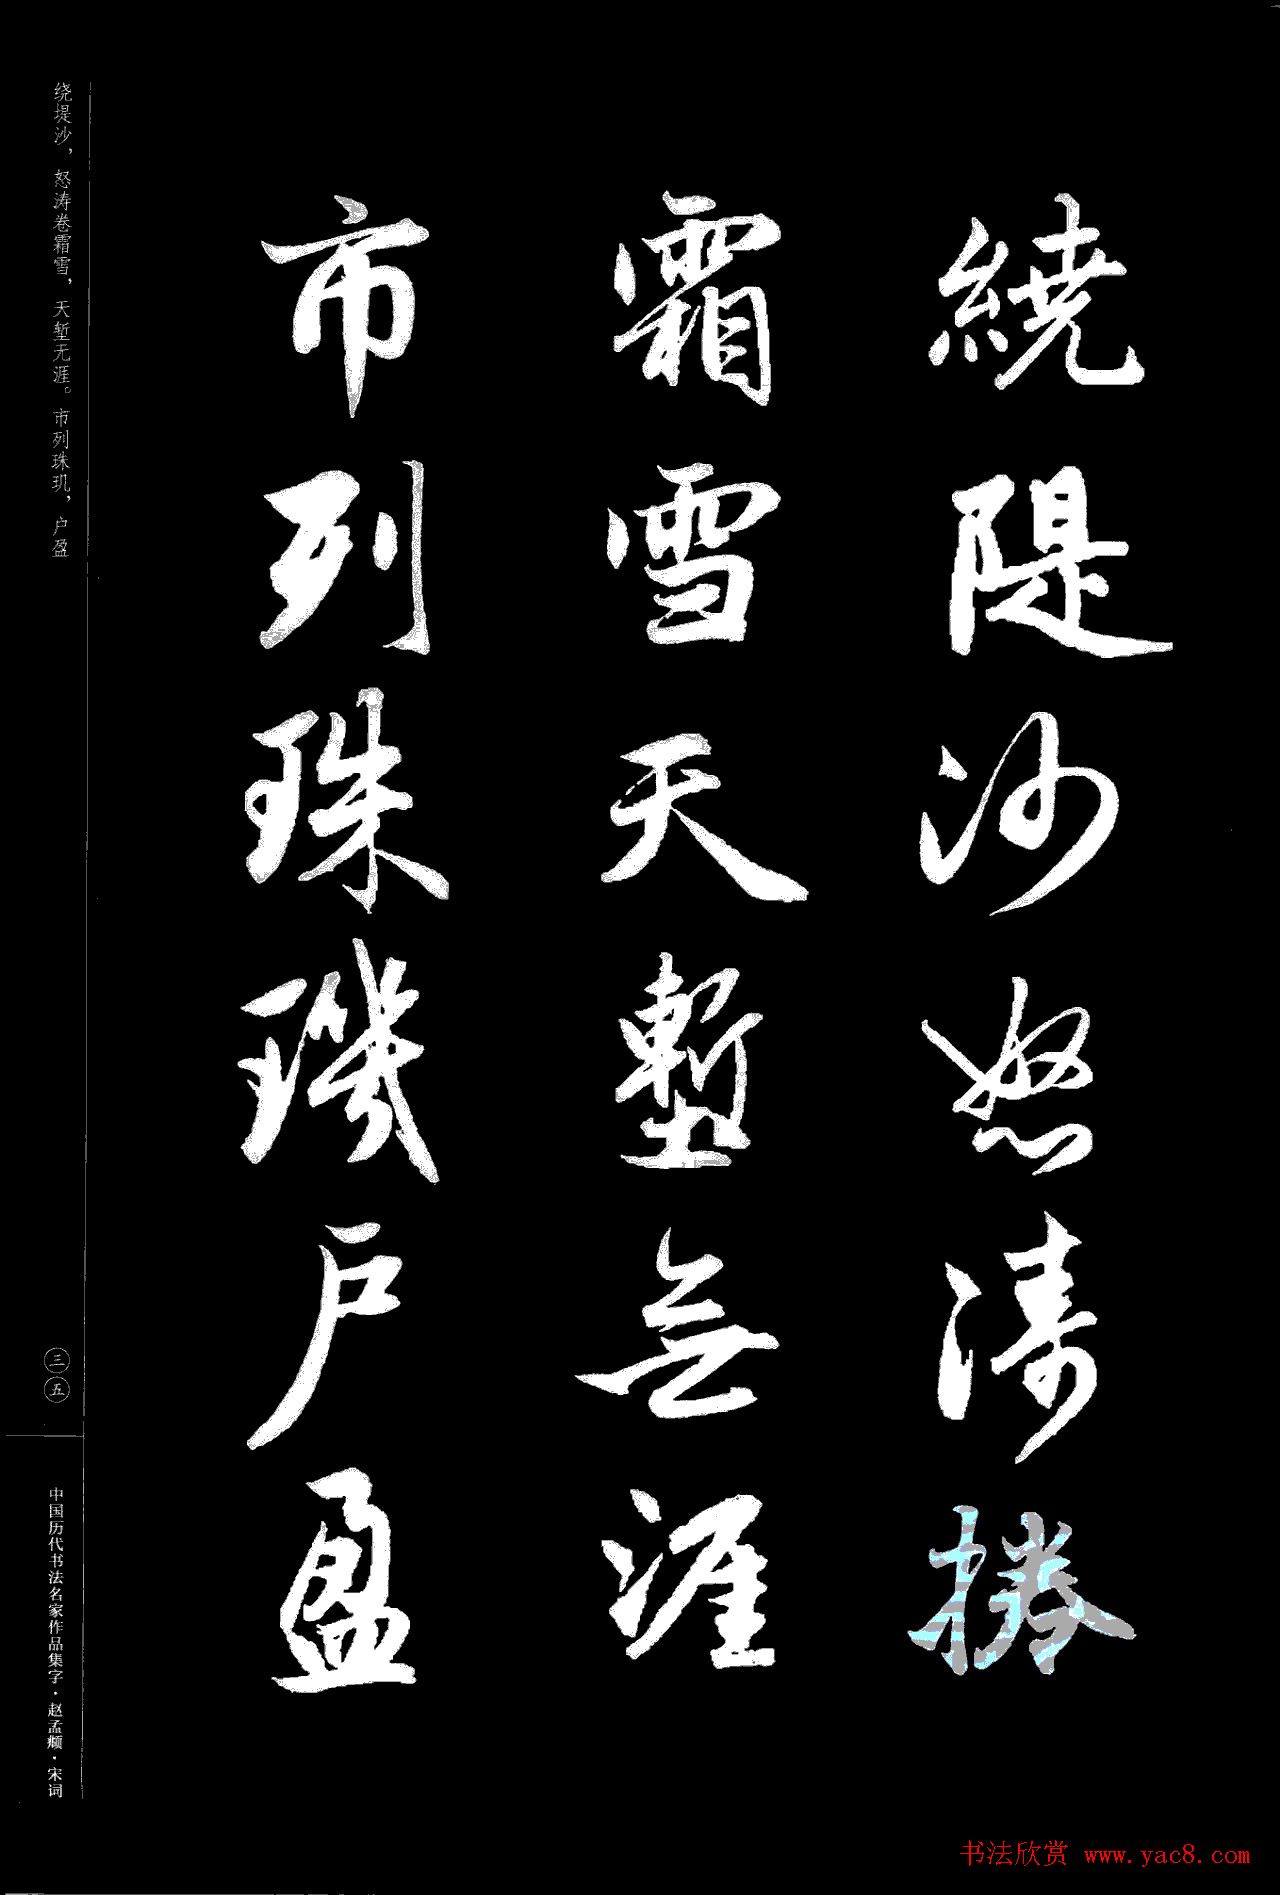 繞隄沙怒濤捲
霜雪天塹無涯
市列珠璣戶盈
绕堤沙，怒涛卷霜雪，天堑无涯。市列珠玑，户盈
三五
中国历代书法名家作品集字·赵孟頫·宋词
书法欣赏 www.yac8.com